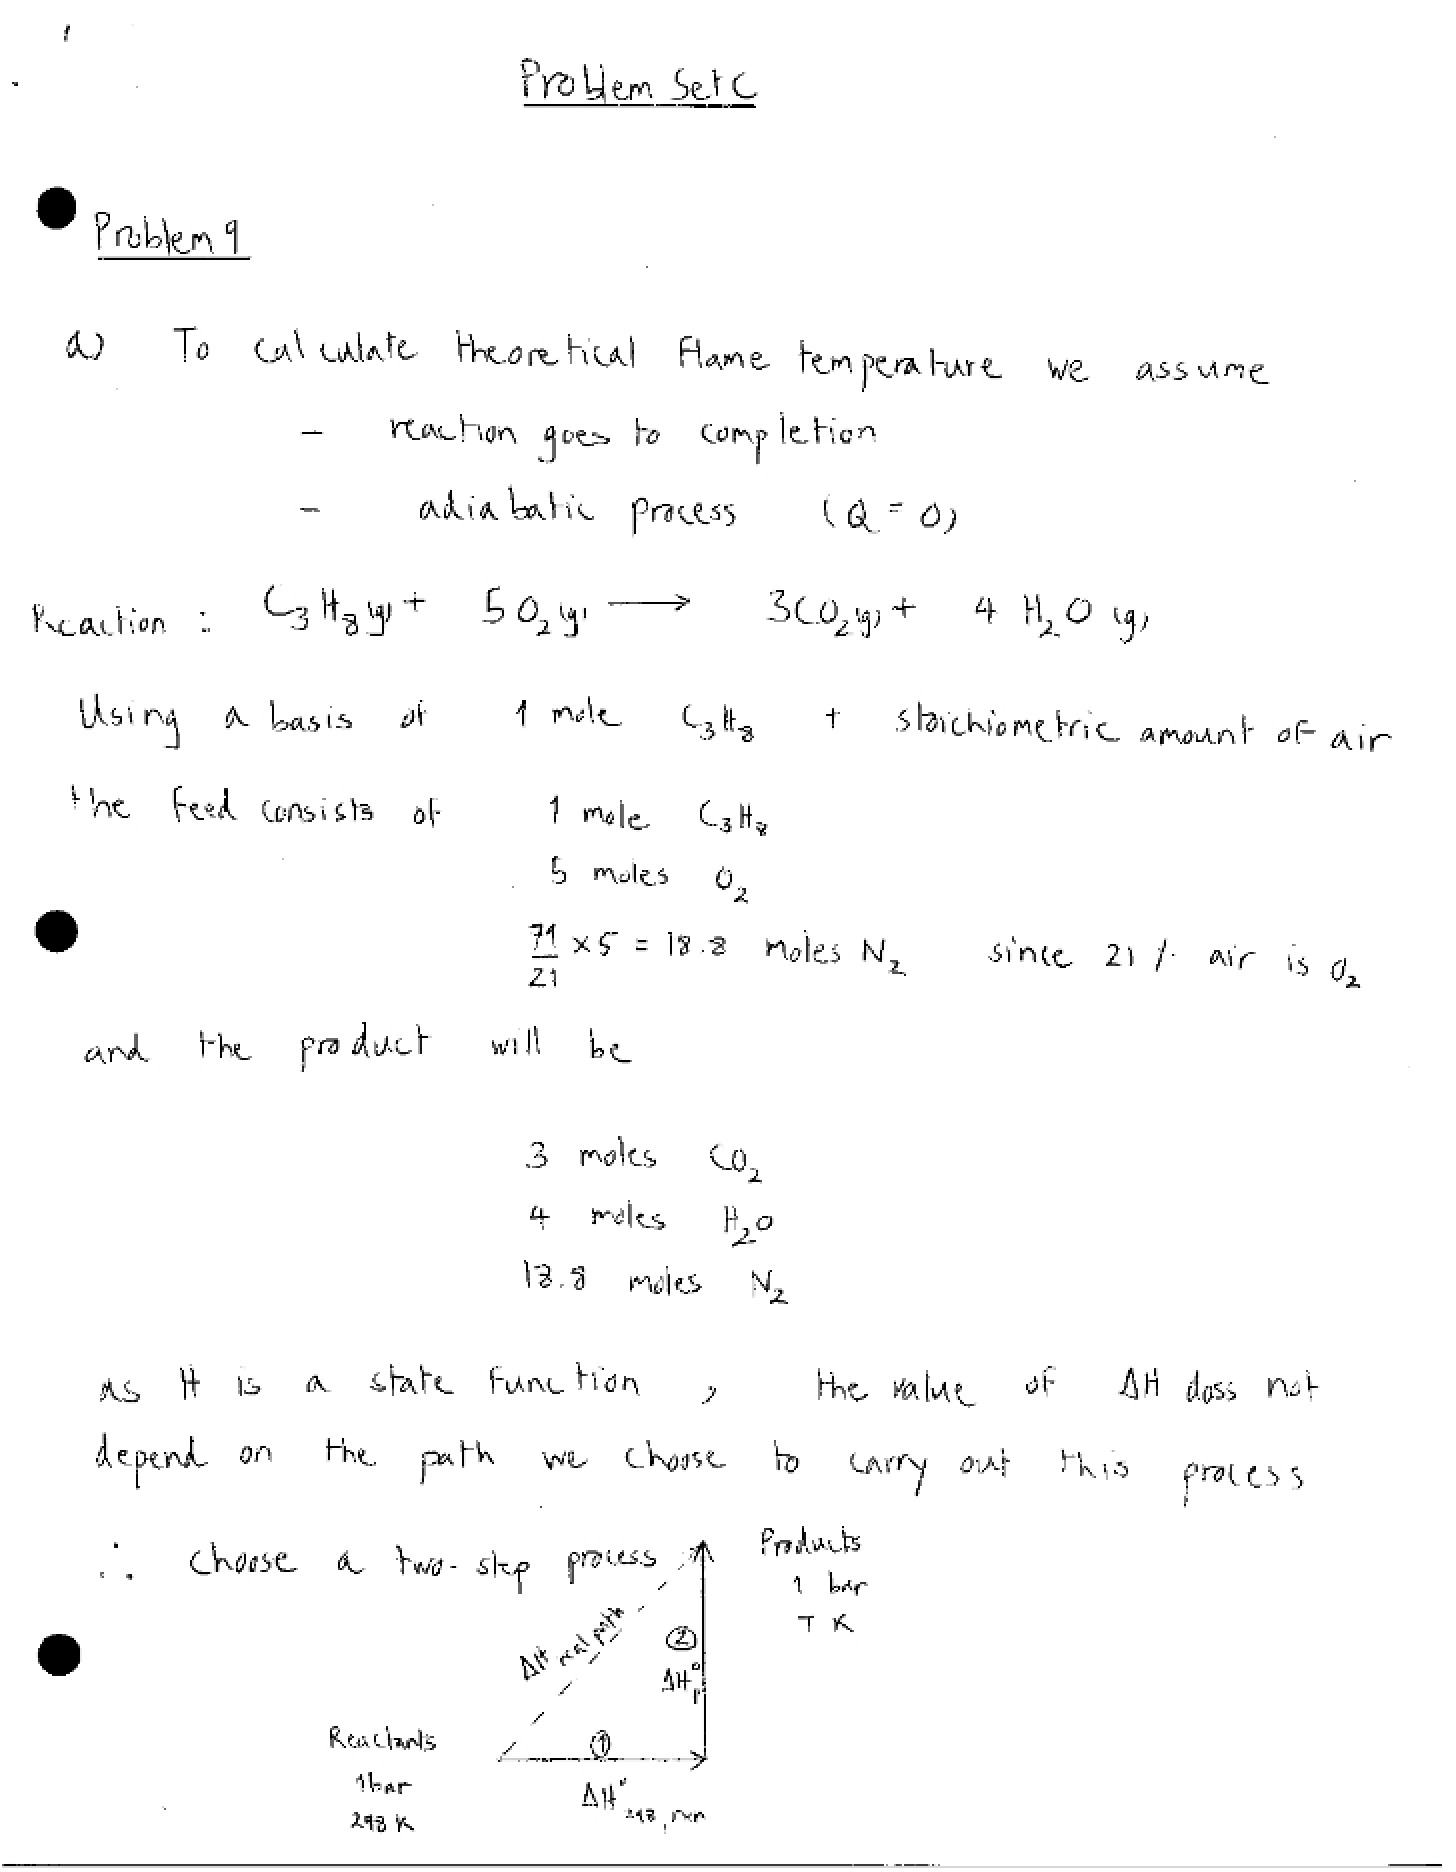 Problem Set C
Problem 9
a) To calculate theoretical flame temperature we assume
- reaction goes to completion
- adiabatic process (Q = 0)
Reaction : C3H8(g) + 5O2(g) ⟶ 3CO2(g) + 4H2O(g)
Using a basis of 1 mole C3H8 + stoichiometric amount of air
the feed consists of 1 mole C3H8
5 moles O2
79/21 × 5 = 18.8 moles N2 since 21 % air is O2
and the product will be
3 moles CO2
4 moles H2O
18.8 moles N2
as H is a state function , the value of ΔH doss not
depend on the path we choose to carry out this process
∴ choose a two-step process
Products
1 bar
T K
ΔH real path
②
ΔH°p
Reactants
1 bar
298 K
①
ΔH°298, rxn